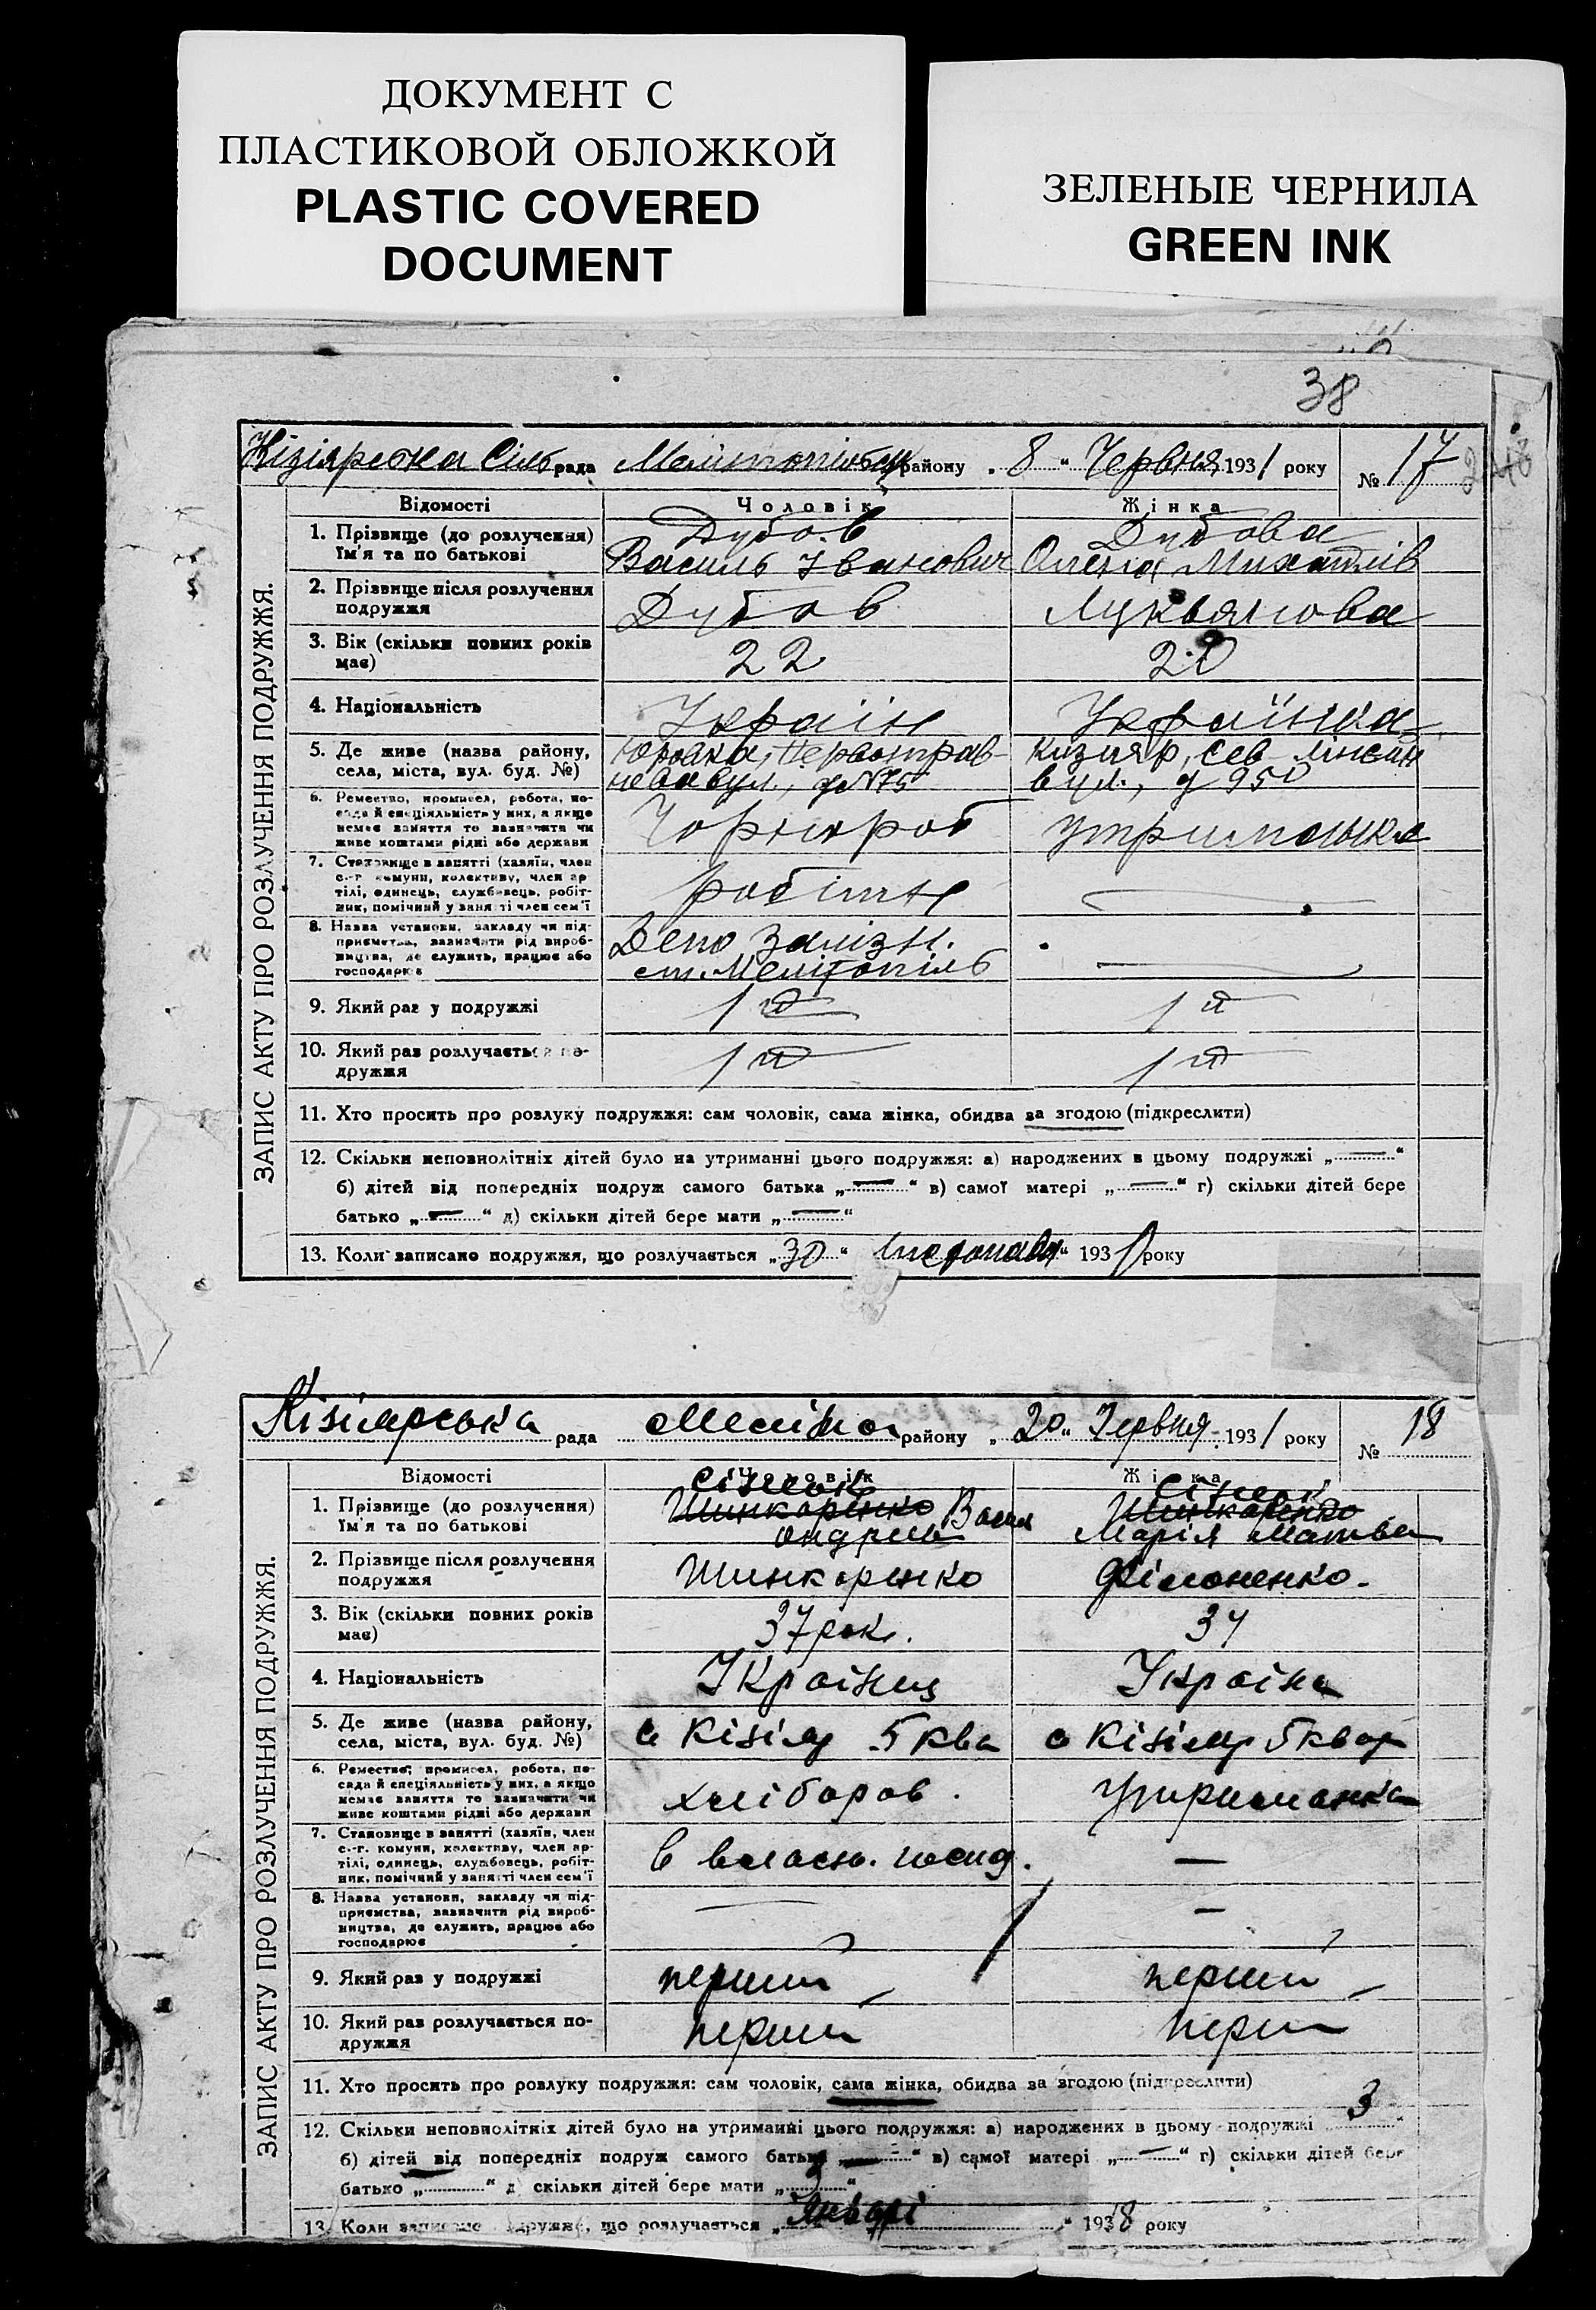 ДОКУМЕНТ С
ПЛАСТИКОВОЙ ОБЛОЖКОЙ
PLASTIC COVERED
DOCUMENT
ЗЕЛЕНЫЕ ЧЕРНИЛА
GREEN INK
38
ЗАПИС АКТУ ПРО РОЗЛУЧЕННЯ ПОДРУЖЖЯ.
Кізіярська Сільрада району „8“ Червня 1931 року № 17
Відомості Чоловік Жінка
1. Прізвище (до розлучення) Дубов Дубова
Ім'я та по батькові Василь Іванович Олена Михайлів
2. Прізвище після розлучення Дубов Лукьянова
подружжя
3. Вік (скільки повних років 22 20
має)
4. Національність Україн Українка
5. Де живе (назва району,
села, міста, вул. буд. №) вул., д 950
6. Ремество, промисел, робота, по-
сада й спеціяльність у них, а якщо
немає заняття то зазначити чи Чорнороб утриманка
живе коштами рідні або держави
7. Становище в занятті (хазяїн, член
с.-г. комуни, колективу, член ар-
тілі, одинець, службовець, робіт- робітн —
ник, помічний у занятті член сем'ї
8. Назва установи, закладу чи під- Депо Залізн.
приємства, зазначити рід вироб- ст. Мелітопіль —
ництва, де служить, працює або
господарює
9. Який раз у подружжі 1й 1й
10. Який раз розлучається по- 1й 1й
дружжя
11. Хто просить про розлуку подружжя: сам чоловік, сама жінка, обидва за згодою (підкреслити)
12. Скільки неповнолітніх дітей було на утриманні цього подружжя: а) народжених в цьому подружжі „—“
б) дітей від попередніх подруж самого батька „—“ в) самої матері „—“ г) скільки дітей бере
батько „—“ д) скільки дітей бере мати „—“
13. Коли записано подружжя, що розлучається „30“ Листопада“ 193 року
ЗАПИС АКТУ ПРО РОЗЛУЧЕННЯ ПОДРУЖЖЯ.
Кізіярська рада Меліто району „20“ Червня 1931 року № 18
Відомості Чоловік Жінка
1. Прізвище (до розлучення) Шинкаренко Васил Шинкаренко
Ім'я та по батькові Андрев Марія Матве
2. Прізвище після розлучення Шинкаренко Філоненко.
подружжя
3. Вік (скільки повних років 37 рок. 34
має)
4. Національність Українец Україна
5. Де живе (назва району,
села, міста, вул. буд. №) с Кізіяр 5 ква с Кізіяр 5 квар
6. Ремество, промисел, робота, по-
сада й спеціяльність у них, а якщо
немає заняття то зазначити чи хлібороб. Утриманка
живе коштами рідні або держави
7. Становище в занятті (хазяїн, член
с.-г. комуни, колективу, член ар- в власн. госпд. —
тілі, одинець, службовець, робіт-
ник, помічний у занятті член сем'ї
8. Назва установи, закладу чи під-
приємства, зазначити рід вироб- — —
ництва, де служить, працює або
господарює
9. Який раз у подружжі перший перший
10. Який раз розлучається по- перший перш
дружжя
11. Хто просить про розлуку подружжя: сам чоловік, сама жінка, обидва за згодою (підкреслити)
12. Скільки неповнолітніх дітей було на утриманні цього подружжя: а) народжених в цьому подружжі 3
б) дітей від попередніх подруж самого батька „—“ в) самої матері „—“ г) скільки дітей бере
батько „ “ д) скільки дітей бере мати „3“
13. Коли записано подружжя, що розлучається „Январі “ 1938 року